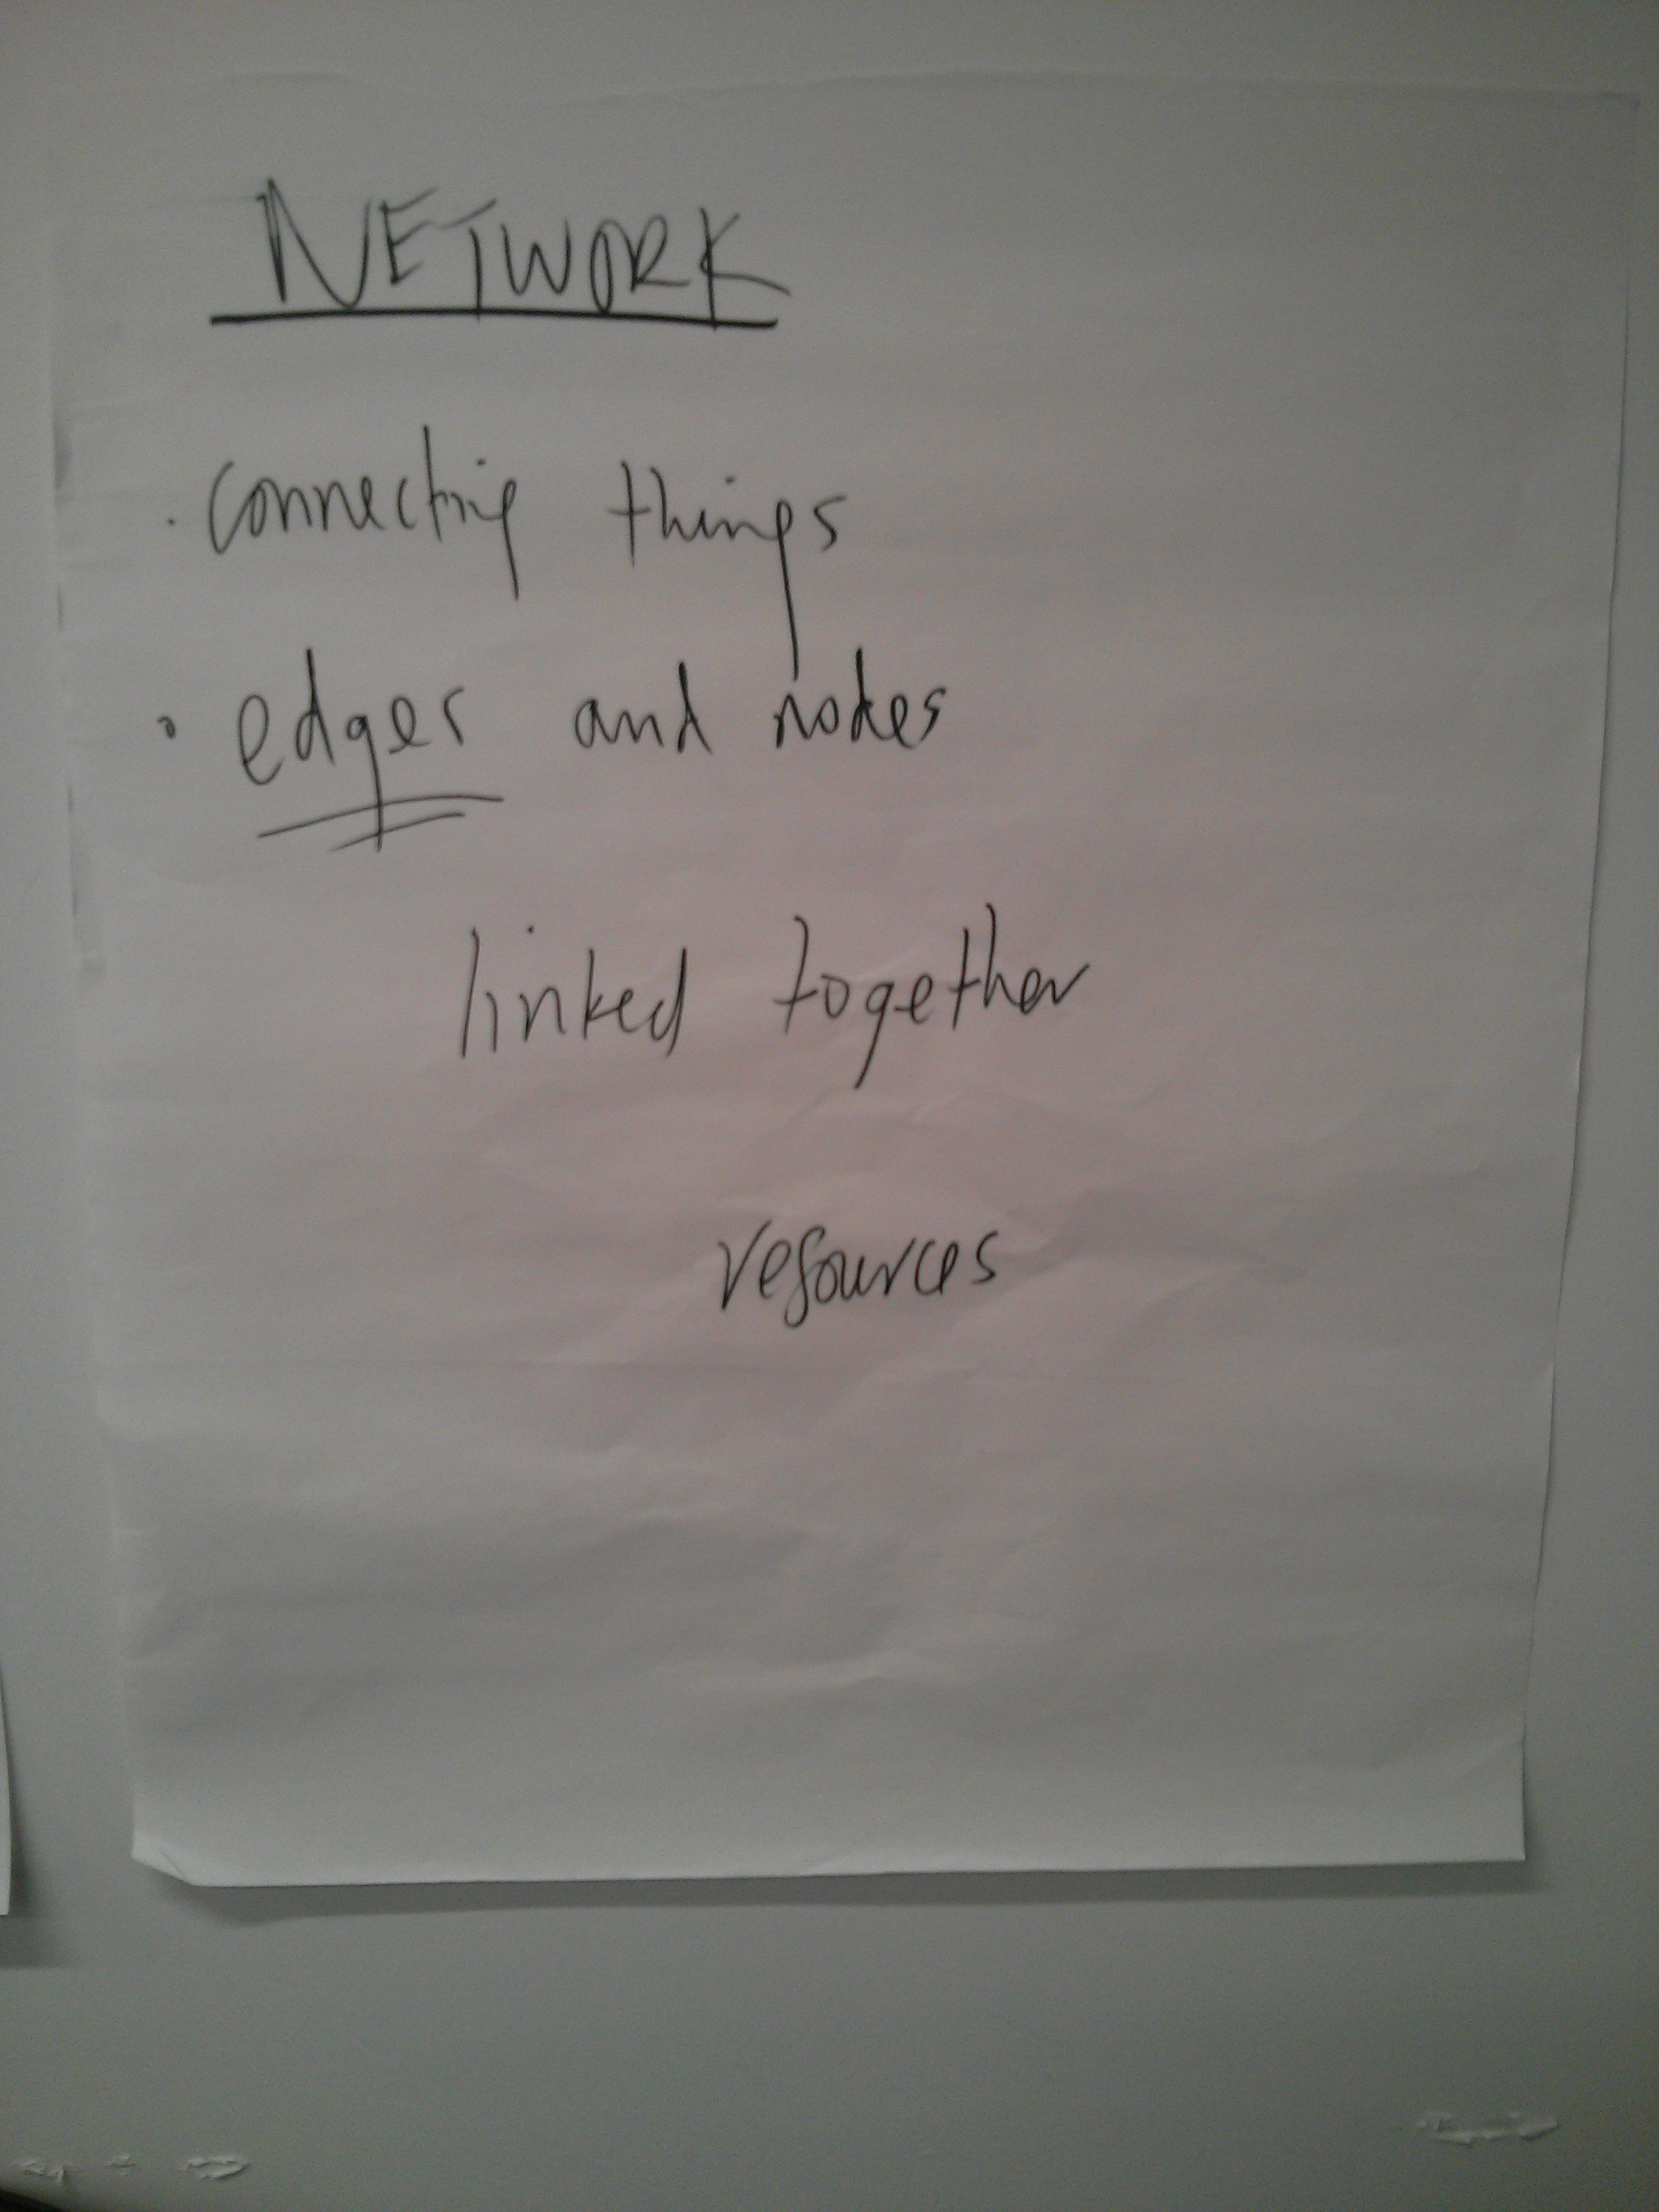 NETWORK
· connecting things
· edges and nodes
linked together
resources